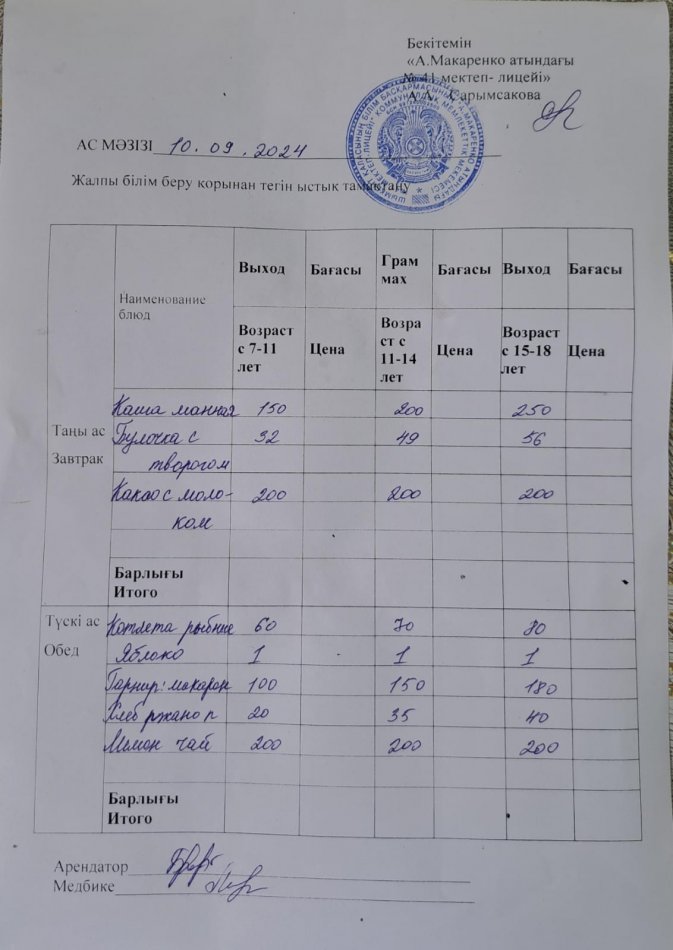 Бекітемін
«А.Макаренко атындағы
№ 41 мектеп- лицейі»
А.А. Сарымсакова
АС МӘЗІЗІ 10.09.2024
Жалпы білім беру қорынан тегін ыстық тамақтану
Наименование блюд
Выход Бағасы Грам мах Бағасы Выход Бағасы
Возраст с 7-11 лет Цена Возра ст с 11-14 лет Цена Возраст с 15-18 лет Цена
Таңы ас
Завтрак
Каша манная 150 200 250
Булочка с 32 49 56
творогом
Какао с моло- 200 200 200
ком
Барлығы
Итого
Түскі ас
Обед
Котлета рыбные 60 70 80
Яблоко 1 1 1
Гарнир: макарон 100 150 180
Хлеб ржаной 20 35 40
чай 200 200 200
Барлығы
Итого
Арендатор
Медбике